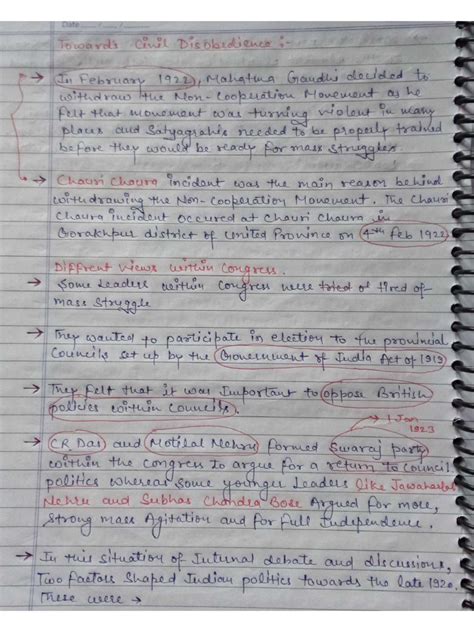 Date
Towards Civil Disobbedience :-
→ In February 1922, Mahatma Gandhi decided to
withdraw the Non-Cooperation Movement as he
felt that movement was turning violent in many
places and Satyagrahis needed to be properly trained
before they would be ready for mass struggles.
→ Chauri Chaura incident was the main reason behind
withdrawing the Non-Cooperation Movement. The Chauri
Chaura incident occured at Chauri Chaura in
Gorakhpur district of United Province on 4th Feb 1922
Diffrent views within Congress.
→ Some Leaders within Congress were tried of tired of
mass struggle
→ They wanted to participate in election to the provincial
Councils set up by the Government of India Act of 1919
→ They felt that it was Important to oppose British
policies within Councils.
→ 1 Jan 1923
→ CR Das and Motilal Nehru formed Swaraj party
within the congress to argue for a return to council
politics whereas some younger Leaders like Jawaharlal
Nehru and Subhas Chandra Bose Argued for more,
strong mass Agitation and for full Independence.
→ In this situation of Internal debate and discussions,
Two factors Shaped Indian politics towards the late 1920.
These were →